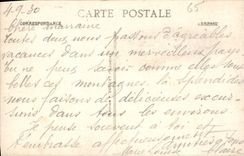 4-9-30
CARTE POSTALE
65
CORRESPONDANCE
ADRESSE
Chère marraine
Toutes deux nous passons d'agréables
vacances dans un merveilleux pays
Tu ne peux savoir comme elles sont
belles ces montagnes là splendides
nous faisons de délicieuses excur-
sions dans tous les environs.
Je pense souvent à toi et
t'embrasse affectueusement